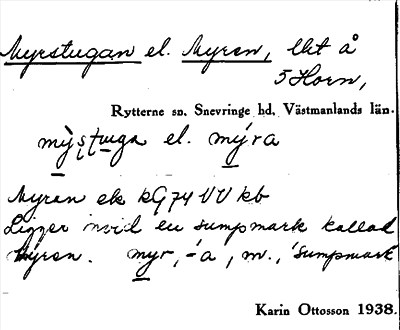 Myrstugan el. Myren, lht å
5 Horn,
Rytterne sn. Snevringe hd. Västmanlands län.
mỳstuga el. mýra
Myran ek kG74 VV kb
Ligger invid en sumpmark kallad
Myren. myr, -a, m., 'sumpmark
Karin Ottosson 1938.